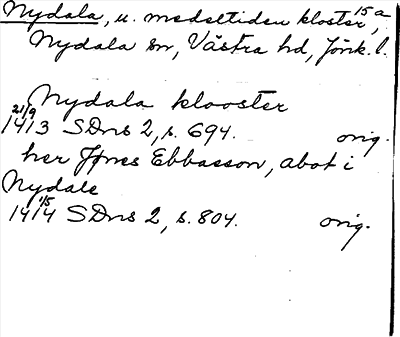 Nydala, u. medeltiden kloster, 15 a
Nydala sn, Västra hd, Jönk. l.
Nydala klooster
21/9 1413 SDns 2, s. 694. orig.
her Jÿnes Ebbasson, abot i
Nydale
1/5 1414 SDns 2, s. 804. orig.